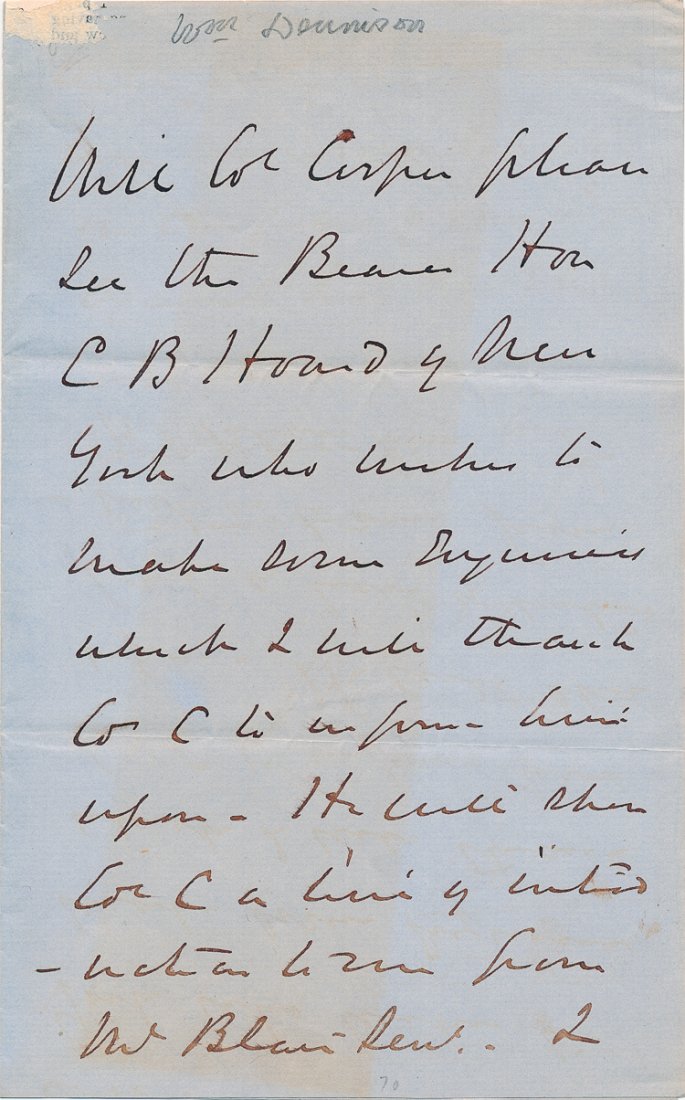 Wm Dennison
Will Col Cooper please
see the Bearer Hon
C B Hoard of New
York who wishes to
make some Enquiries
which I will thank
Col C to inform him
upon - He will show
Col C a line of introd
- uction to me from
Mr Blair Senr. - I
70